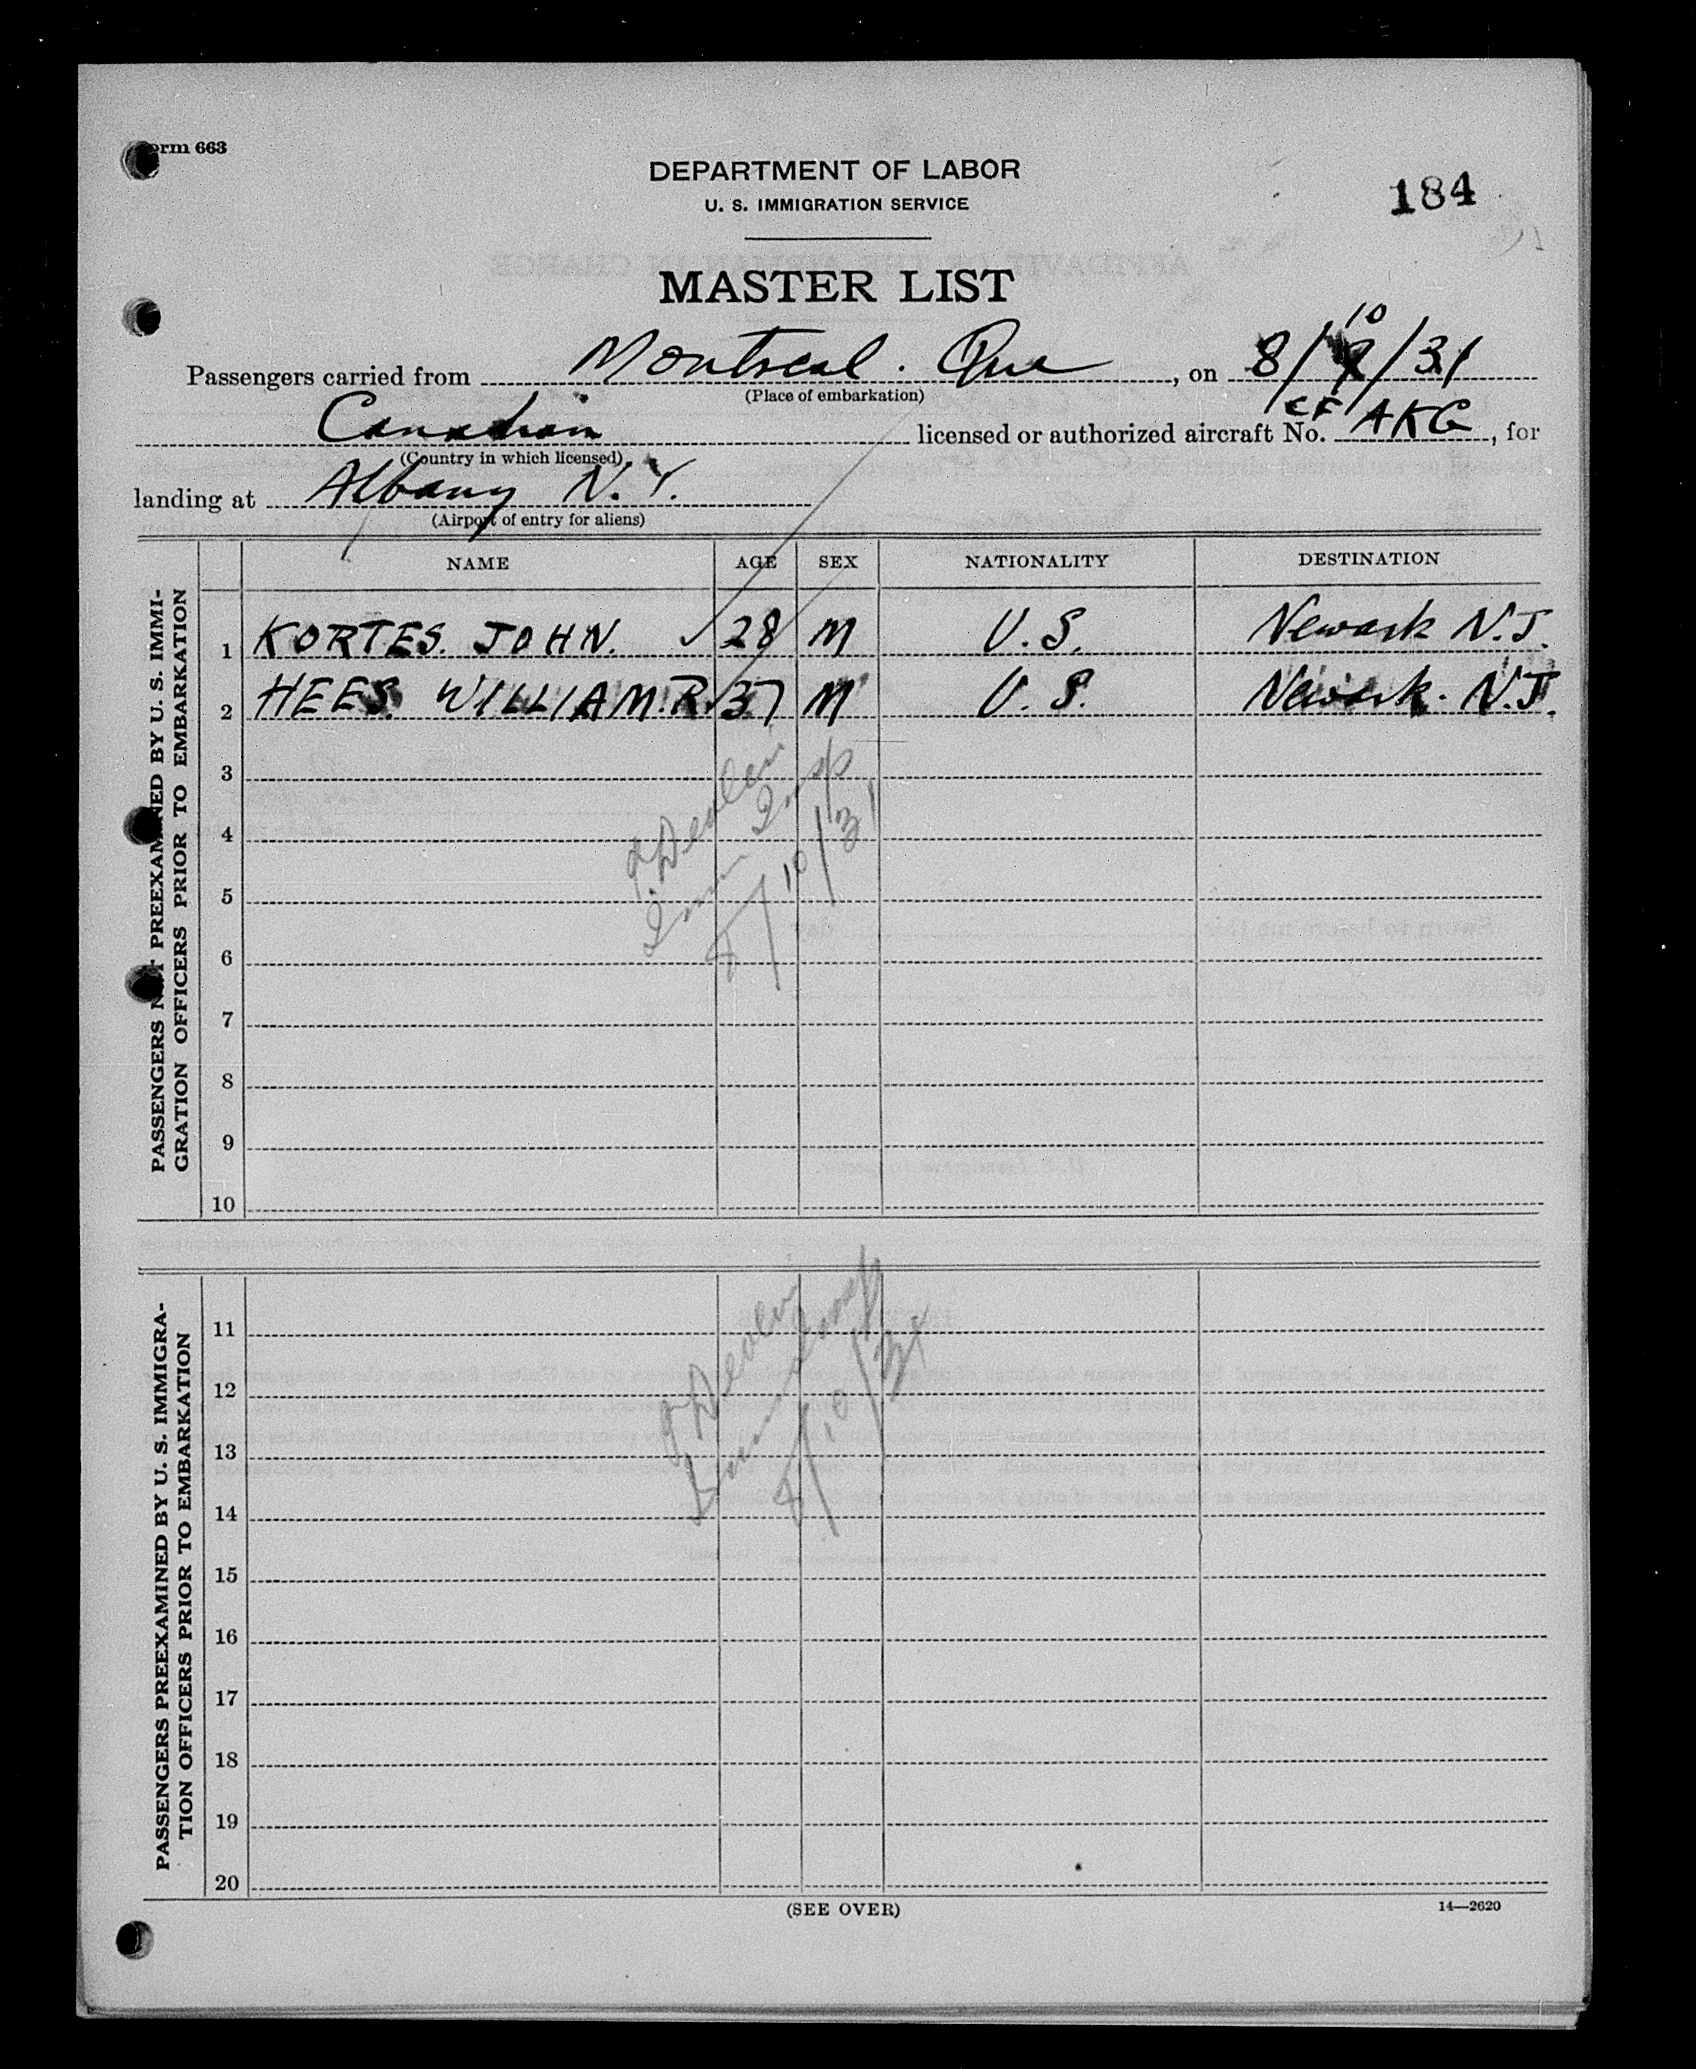 Form 663
DEPARTMENT OF LABOR
U. S. IMMIGRATION SERVICE
184
MASTER LIST
Passengers carried from Montreal. Que, on 8/10/31
(Place of embarkation)
Canadian licensed or authorized aircraft No. CF AKG, for
(Country in which licensed)
landing at Albany N.Y.
(Airport of entry for aliens)
NAME AGE SEX NATIONALITY DESTINATION
PASSENGERS NOT PREEXAMINED BY U. S. IMMI-
GRATION OFFICERS PRIOR TO EMBARKATION
1 KORTES. JOHN. ✓ 28 M U.S. Newark N.J.
2 HEES. WILLIAM.R. 37 M U.S. Newark. N.J.
3
4
5
6
7
8
9
10
Insp
8/10/31
PASSENGERS PREEXAMINED BY U. S. IMMIGRA-
TION OFFICERS PRIOR TO EMBARKATION
11
12
13
14
15
16
17
18
19
20
8/10/31
(SEE OVER)
14—2620